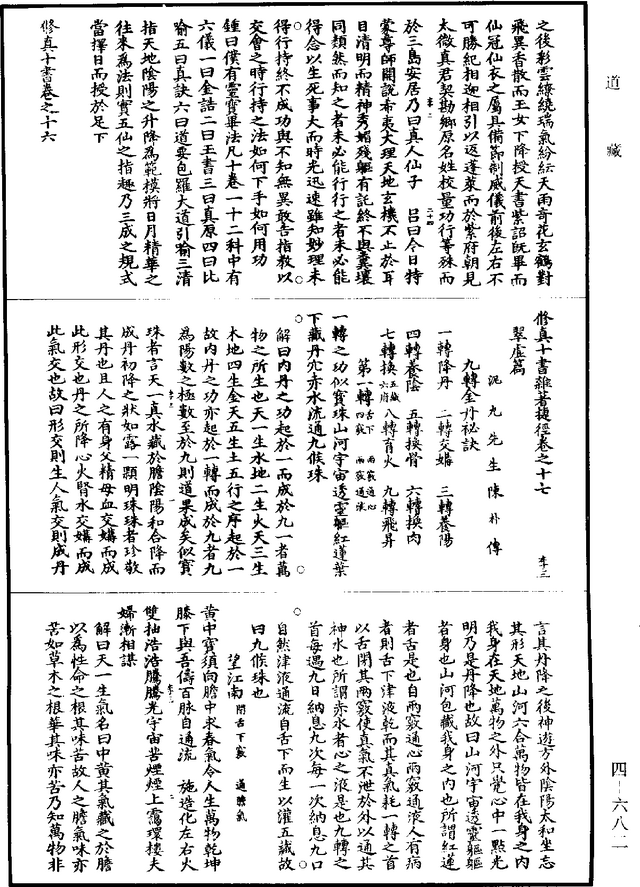 道藏
之後彩雲繚繞瑞氣紛紜天雨奇花玄鶴對
飛異香散而王女下降授天書紫詔既畢而
仙冠仙衣之屬具備節制威儀前後左右不
可勝紀相迎相引以返蓬萊而於紫府朝見
太微真君契勘鄉原名姓校量功行等殊而
於三島安居乃曰真人仙子 呂曰今日特
蒙尊師開說希夷大理天地玄機不止於耳
目清明而精神秀媚殘軀有託終不與糞壤
同類然而知之者未必能行行之者未必能
得念以生死事大而時光迅速雖知妙理未
得行持終不成功與不知無異敢告指教以
交會之時行持之法如何下手如何用功
鍾曰僕有靈寶畢法凡十卷一十二科中有
六儀一曰金誥二曰玉書三曰真原四曰比
喻五曰真訣六曰道要包羅大道引喻三清
指天地陰陽之升降為範模將日月精華之
往來為法則實五仙之指趣乃三成之規式
當擇日而授於足下
修真十書卷之十六
修真十書雜著捷徑卷之十七
翠虛篇
泥丸先生陳朴傳
九轉金丹祕訣
一轉降丹 二轉交媾 三轉養陽
四轉養陰 五轉換骨 六轉換肉
七轉換五臟六腑 八轉育火 九轉飛昇
第一轉舌下四竅 兩竅通心 兩竅通液
一轉之功似寶珠山河宇宙透靈軀紅蓮葉
下藏丹穴赤水流通九候珠
解曰內丹之功起於一而成於九一者萬
物之所生也天一生水地二生火天三生
木地四生金天五生土五行之序起於一
故內丹之功亦起於一轉而成於九者九
為陽數之極數至於九則道果成矣似寶
珠者言天一真水藏於膽陰陽和合降而
成丹初降之狀如露一顆明珠珠者珍敬
其丹也且人之有身父精母血交媾而成
此形交也丹之所降心火腎水交媾而成
此氣交也故曰形交則生人氣交則成丹
言其丹降之後神遊方外陰陽太和坐忘
其形天地山河六合萬物皆在我身之內
我身在天地萬物之外只覺心中一點光
明乃是丹降也故曰山河宇宙透靈軀軀
者身也山河包藏我身之內也所謂紅蓮
者舌是也自兩竅通心兩竅通液人有病
者則舌下津液乾而其真氣耗一轉之首
以舌閉其兩竅使真氣不泄於外以通其
神水也所謂赤水者心之液是也九轉之
首每遇九日納息九次每一次納息九口
自然津液通流自舌下而生以灌五臟故
曰九候珠也
望江南閉舌下竅 通膽氣
黃中寶須向膽中求春氣令人生萬物乾坤
膝下與吾儔百脉自通流 施造化左右火
雙抽浩浩騰騰光宇宙苦煙煙上靄環樓夫
婦漸相謀
解曰天一生氣名曰中黃其氣藏之於膽
以為性命之根其味苦故人之膽氣味亦
苦如草木之根華其味亦苦乃知萬物非
四－六八二